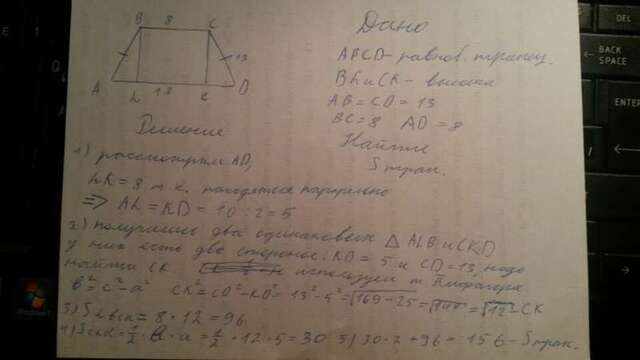 B 8 C
13
A L 18 K D
Дано
ABCD - равноб. трапец.
BL и CK - высоты
AB = CD = 13
BC = 8 AD = 8
Найти
S трап.
Решение
1) рассмотрим AD,
LK = 8 т.к. находятся параллельно
=> AL = KD = 10 : 2 = 5
2) получились два одинаковых Δ ALB и CKD
у них есть две стороны: KD = 5 и CD = 13, надо
найти CK используем т. Пифагора
в² = c² - a² CK² = CD² - KD² = 13² - 5² = √169 - 25 = √144 = √12 - CK
3) S LBCK = 8 · 12 = 96
4) S CKD = 1/2 · a = 1/2 · 12 · 5 = 30 5) 30 · 2 + 96 = 156 - S трап.
DEL
BACK SPACE
ENTER